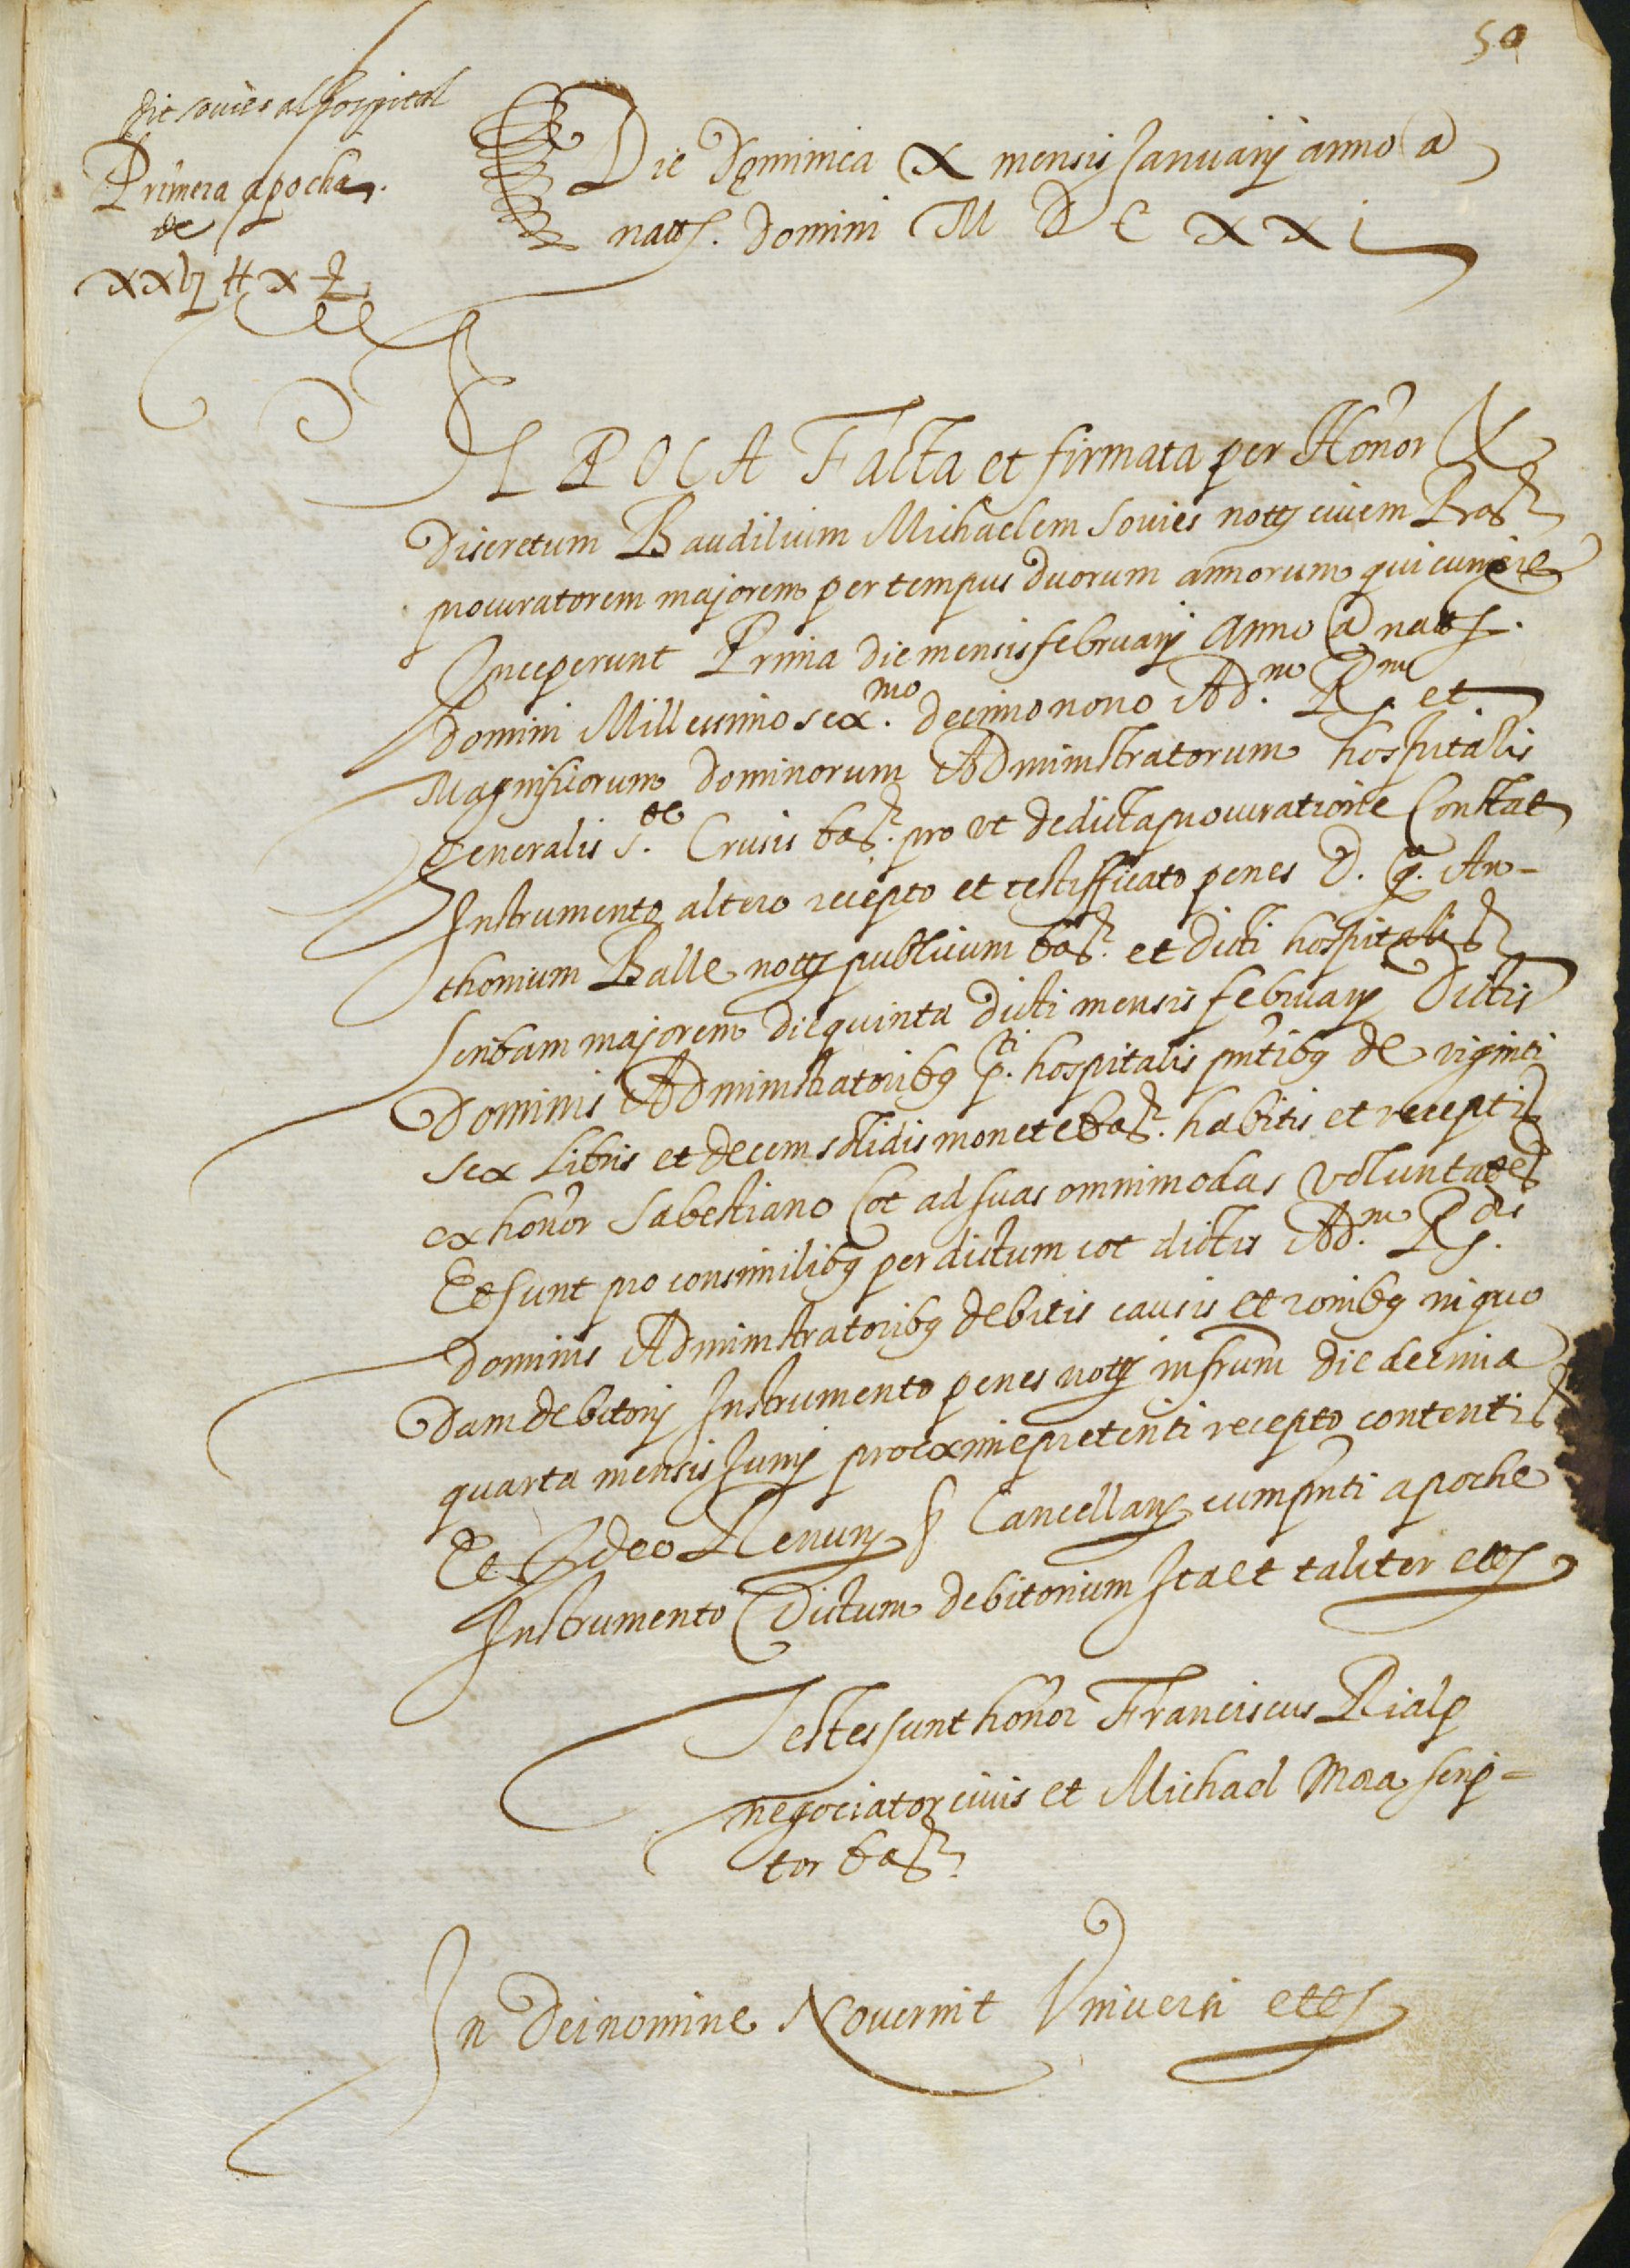 50
dit sovies al hospital
Primera apocha
de
xxvj ₶ x ß
Die Dominica X mensis Januarij anno a
natt. Domini M D C X X i
APOCA Facta et firmata per Honor &
Discretum Baudilium Michaelem Sovies notm civem Bar
procuratorem majorem per tempus duorum annorum qui
Inceperunt Prima die mensis februarij anno a natt.
Domini Millessimo sex.mo decimo nono Ad.m R.m et
Magnificorum Dominorum Administratorum hospitalis
Generalis S.te Crusis bar. pro ut de dicta procuratione Constat
Instrumento altero recepto et testifficato penes D. q. An-
thonium Balle notm publicum bar. et dicti hospitalis
scribam majorem die quinta dicti mensis februarij Dictis
Dominis Administratoribq p.ti hospitalis pntibq de viginti
sex Libris et decem solidis monete bar. habitis et receptis
ex honor Sabestiano Cot ad suas omnimodas voluntates
Et sunt pro consimilibq per dictum cot dictis Ad.m R.dis
Dominis Administratoribq debitis causis et ronibq in quo
dam debitorij Instrumento penes notm infrum die decima
quarta mensis Junij proxime preteriti recepto contentis
Et Ideo Renunj § Cancellanj cum pnti apoche
Instrumento Dictum debitorium Ita et taliter ett
Testes sunt honor Franciscus Rialp
negociator civis et Michael Mora scrip=
tor bar.
In Dei nomine Noverint Universi ett